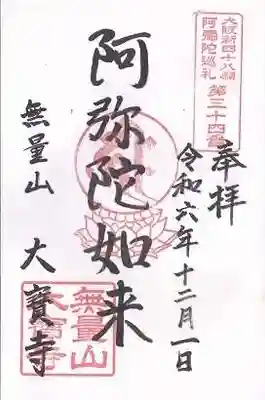 大阪新四十八願
阿彌陀巡礼 第三十四番
奉拝
令和六年十二月一日
阿弥陀如来
無量山
大寶寺
無量山
大宝寺